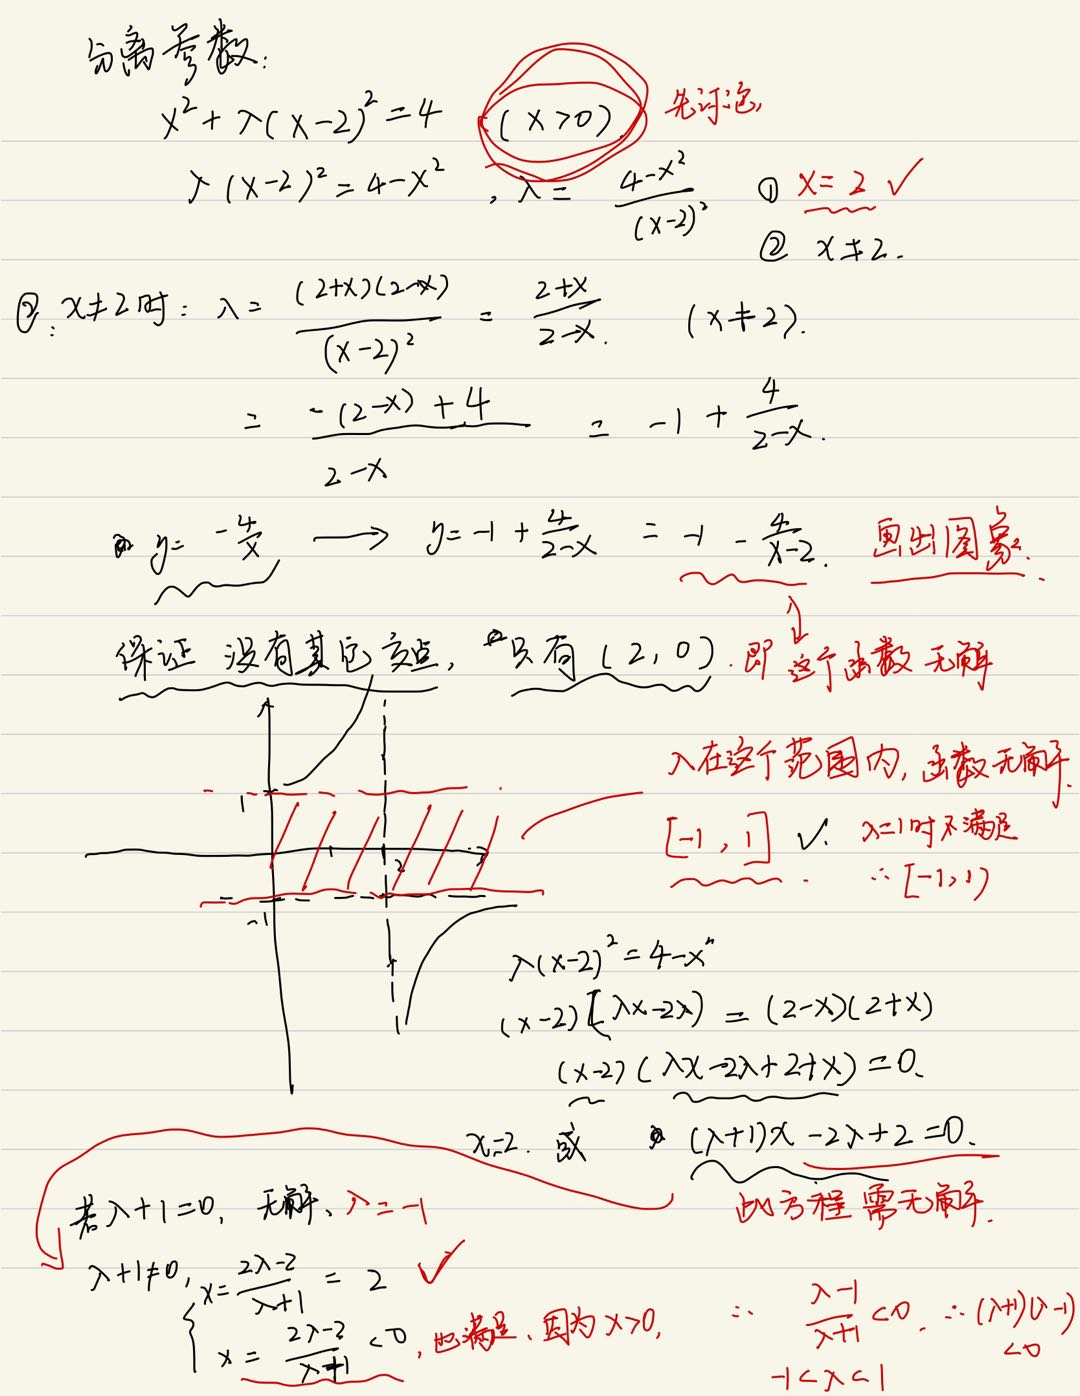 分离参数:
x²+λ(x-2)²=4 (x>0) 先讨论,
λ(x-2)²=4-x², λ= (4-x²)/(x-2)² ① x=2 ✓
② x≠2.
②: x≠2时: λ= (2+x)(2-x)/(x-2)² = (2+x)/(2-x). (x≠2).
= (-(2-x)+4)/(2-x) = -1+4/(2-x).
y= -4/x → y=-1+4/(2-x) = -1-4/(x-2). 画出图象.
保证 没有其它交点, 只有(2,0). 即 这个函数 无解
λ在这个范围内,函数无解.
1 1 2 -1
[-1,1] ✓. λ=1时不满足
∴[-1,1)
λ(x-2)²=4-x²
(x-2)[λx-2λ)=(2-x)(2+x)
(x-2)(λx-2λ+2+x)=0.
x=2. 或 (λ+1)x-2λ+2=0.
此方程需无解.
若λ+1=0, 无解、λ=-1
λ+1≠0, x= (2λ-2)/(λ+1) = 2 ✓
x= (2λ-2)/(λ+1) <0, 也满足、因为x>0,
∴ (λ-1)/(λ+1) <0. ∴(λ+1)(λ-1)<0
-1<λ<1